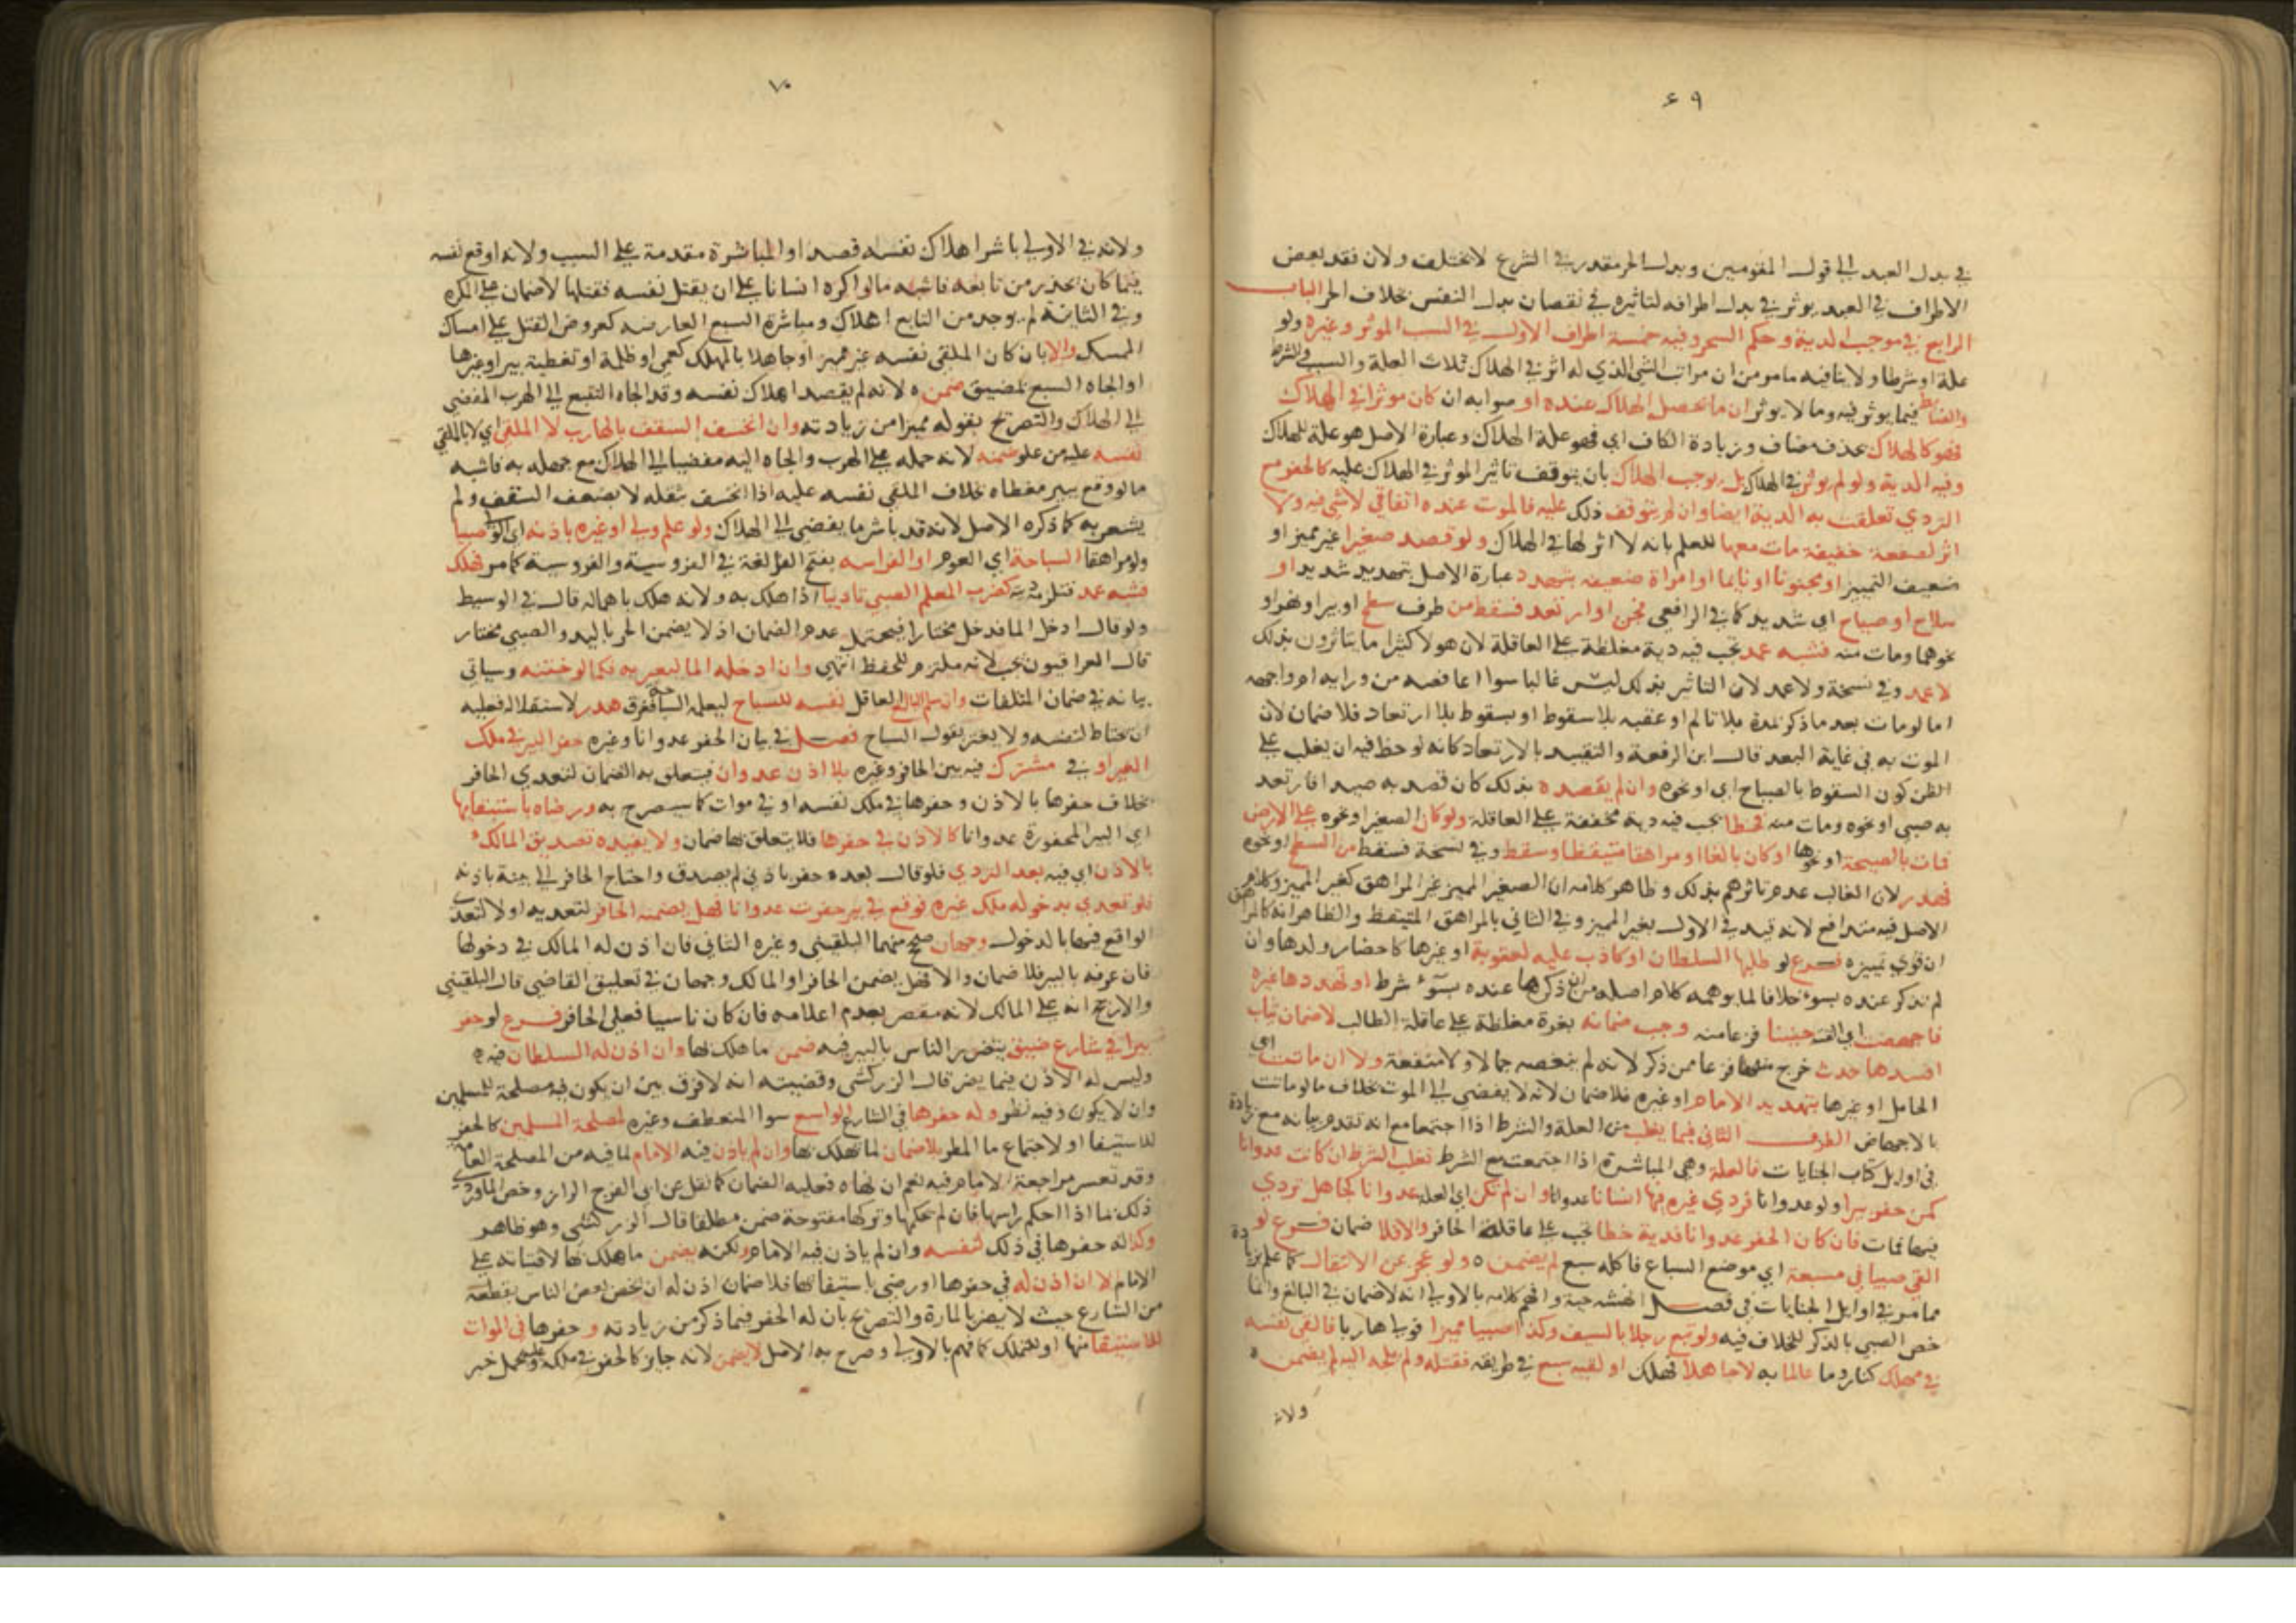 ٦٩
في بدل العبد الي قول المقومين وبدل الحر مقدر في الشرع لا يختلف ولان فقد بعض
الاطراف في العبد يوثر في بدل اطرافه لتاثيره في نقصان بدل النفس بخلاف الحر الباب
الرابع في موجب الدية وحكم السحر وفيه خمسة اطراف الاول في السبب الموثر وغيره ولو
علة او شرطا ولا ينافيه ما مر من ان مراتب الشي الذي له اثر في الهلاك ثلاث العلة والسبب والشرط
والضابط فيما يوثر فيه وما لا يوثر ان ما تحصل الهلاك عنده او صوابه ان كان موثرا في الهلاك
فهو كالهلاك بحذف مضاف وزيادة الكاف اي فهو علة الهلاك وعبارة الاصل هو علة للهلاك
وفيه الدية ولو لم يوثر في الهلاك بل يوجب الهلاك بان يتوقف تاثير الموثر في الهلاك عليه كالحفر مع
التردي تعلقت به الدية ايضا وان لم يتوقف ذلك عليه فالموت عنده اتفاقي لا شي فيه ولا
اثر لصفعة خفيفة مات معها للعلم بانه لا اثر لها في الهلاك ولو قصد صغيرا غير مميز او
ضعيف التمييز او مجنونا او نايما او امراة ضعيفة بتهدد عبارة الاصل بتهديد شديد او
سلاح او صياح اي شديد كما في الرافعي فجن او ارتعد فسقط من طرف سطح او بير او نهر او
نحوهما ومات منه فشبه عمد تجب فيه دية مغلظة علي العاقلة لان هولا كثيرا ما يتاثرون بذلك
لا عمد وفي نسخة ولا عمد لان التاثير بذلك ليس غالبا سوا اعافصه من ورايه ام واجهه
اما لو مات بعد ما ذكر لمدة بلا تالم او عقبه بلا سقوط او بسقوط بلا ارتعاد فلا ضمان لان
الموت به في غاية البعد قال ابن الرفعة والتقييد بالارتعاد كانه لوحظ فيه ان يغلب علي
الظن كون السقوط بالصياح اي او نحوه وان لم يقصده بذلك كان قصد به صيدا فارتعد
به صبي او نحوه ومات منه فخطا يجب فيه دية مخففة علي العاقلة ولو كان الصغير او نحوه علي الارض
فمات بالصيحة او نحوها او كان بالغا او مراهقا متيقظا وسقط وفي نسخة فسقط من السطح او نحوه
فهدر لان الغالب عدم تاثرهم بذلك وظاهر كلامه ان الصغير المميز غير المراهق كغير المميز وكلام
الاصل فيه متدافع لانه قيد في الاول بغير المميز وفي الثاني بالمراهق المتيقظ والظاهر انه كالمراهق
ان قوي تمييزه فرع لو طلبها السلطان او كاذب عليه لعقوبة او غيرها كاحضار ولدها وان
لم تذكر عنده بسوء خلافا لما يوهمه كلام اصله من ان ذكرها عنده بسوء شرط او تهددها غيره
فاجهضت اي القت جنينا فزعا منه وجب ضمانه بغرة مغلظة علي عاقلة الطالب لا ضمان ثياب
افسدها حدث خرج منها فزعا ممن ذكر لانه لم ينقصه جمالا ولا منفعة ولا ان ماتت اي
الحامل او غيرها بتهديد الامام او غيره فلا ضمان لانه لا يفضي الي الموت بخلاف ما لو ماتت
بالاجهاض الطرف الثاني فيما يغلب من العلة والشرط اذا اجتمعا مع انه تقدم بيانه مع زيادة
في اوايل كتاب الجنايات فالعلة وهي المباشرة اذا اجتمعت مع الشرط تغلب الشرط ان كانت عدوانا
كمن حفر بيرا ولو عدوانا فردي غيره فيها انسانا عدوانا وان لم تكن اي العلة عدوانا كجاهل تردي
فيها فمات فان كان الحفر عدوانا فدية خطا تجب علي عاقلة الحافر والا فلا ضمان فرع لو
القي صبيا في مسبعة اي موضع السباع فاكله سبع لم يضمنه ولو عجز عن الانتقال كما علم بزيادة
مما مر في اوايل الجنايات في فصل انهشه حية وافهم كلامه بالاولي انه لا ضمان في البالغ وانما
خص الصبي بالذكر للخلاف فيه ولو تبع رجلا بالسيف وكذا صبيا مميزا فولي هاربا فالقي نفسه
في مهلك كنار وما عالما به لا جاهلا فهلك او لقيه سبع في طريقه فقتله ولم يلجه اليه لم يضمنه
ولانه
٧٠
ولانه في الاولي باشر اهلاك نفسه قصدا والمباشرة مقدمة علي السبب ولانه اوقع نفسه
فيما كان يحذر من تابعه فاشبه ما لو اكره انسانا علي ان يقتل نفسه فقتلها لا ضمان علي المكره
وفي الثانية لم يوجد من التابع اهلاك ومباشرة السبع العارضة كعروض القتل علي امساك
الممسك والا بان كان الملقي نفسه غير مميز او جاهلا بالمهلك كعمي او ظلمة او تغطية بير او غيرها
او الجاه السبع لمضيق ضمنه لانه لم يقصد اهلاك نفسه وقد الجاه التتبع الي الهرب المفضي
الي الهلاك والتصريح بقوله مميزا من زيادته وان انخسف السقف بالهارب لا الملقي اي لا بالملقي
نفسه عليه من علو ضمنه لانه حمله علي الهرب والجاه اليه مفضيا الي الهلاك مع جهله به فاشبه
ما لو وقع ببير مغطاه بخلاف الملقي نفسه عليه اذا انخسف بثقله لا بضعف السقف ولم
يشعر به كما ذكره الاصل لانه قد باشر ما يفضي الي الهلاك ولو علم ولي او غيره باذنه اي الولي صبيا
ولو مراهقا السباحة اي العوم او الفراسه بفتح الفا لغة في الفروسية والفروسية كما مر فهلك
فشبه عمد فتلزمه ديته كضرب المعلم الصبي تاديبا اذا هلك به ولانه هلك باهماله قال في الوسيط
ولو قال ادخل الما فدخل مختارا فيحتمل عدم الضمان اذ لا يضمن الحر باليد والصبي مختار
قال العراقيون يجب لانه ملتزم للحفظ انتهي وان ادخله الما ليعبر به فكما لو ختنه وسياتي
بيانه في ضمان المتلفات وان سلم البالغ العاقل نفسه للسباح ليعلمه السباحة فغرق هدر لاستقلاله فعليه
ان يحتاط لنفسه ولا يغتر بقول السباح فصل في بيان الحفر عدوانا وغيره حفر البير في ملك
الغير او في مشترك فيه بين الحافر وغيره بلا اذن عدوان فيتعلق به الضمان لتعدي الحافر
بخلاف حفرها بالاذن وحفرها في ملك نفسه او في موات كما سيصرح به ورضاه باستبقايها
اي البير المحفورة عدوانا كالاذن في حفرها فلا يتعلق بها ضمان ولا يفيده تصديق المالك
بالاذن اي فيه بعد التردي فلو قال بعده حفر باذني لم يصدق واحتاج الحافر الي بينة باذنه
فلو تعدي بدخوله ملك غيره فوقع في بير حفرت عدوانا فهل يضمنه الحافر لتعديه او لا لتعدي
الواقع فيها بالدخول وجهان صحح منهما البلقيني وغيره الثاني فان اذن له المالك في دخولها
فان عرفه بالبير فلا ضمان والا فهل يضمن الحافر او المالك وجهان في تعليق القاضي قال البلقيني
والارجح انه علي المالك لانه مقصر بعدم اعلامه فان كان ناسيا فعلي الحافر فرع لو حفر
بيرا في شارع ضيق يتضرر الناس بالبير فيه ضمن ما هلك بها وان اذن له السلطان فيه
وليس له الاذن فيما يضر قال الزركشي وقضيته انه لا فرق بين ان يكون فيه مصلحة للمسلمين
وان لا يكون وفيه نظر وله حفرها في الشارع الواسع سوا المنعطف وغيره لمصلحة المسلمين كالحفر
للاستيفا او لاجتماع ما المطر بلا ضمان لما تهلك بها وان لم ياذن فيه الامام لما فيه من المصلحة العامة
وقد تعسر مراجعة الامام فيه نعم ان نهاه فعليه الضمان كما نقل عن ابي الفرج الزاز وخص الماوردي
ذلك بما اذا احكم راسها فان لم يحكمها وتركها مفتوحة ضمن مطلقا قال الزركشي وهو ظاهر
وكذا له حفرها في ذلك لنفسه وان لم ياذن فيه الامام ولكنه يضمن ما هلك بها لافتياته علي
الامام لا ان اذن له في حفرها او رضي باستبقائها فلا ضمان اذن له ان يخص بعض الناس بقطعة
من الشارع حيث لا يضر بالمارة والتصريح بان له الحفر فيما ذكر من زيادته وحفرها في الموات
للاستيقا منها او للتملك كما فهم بالاولي وصرح به الاصل لا يضمن لانه جايز كالحفر في ملكه وعليه يحمل خبر